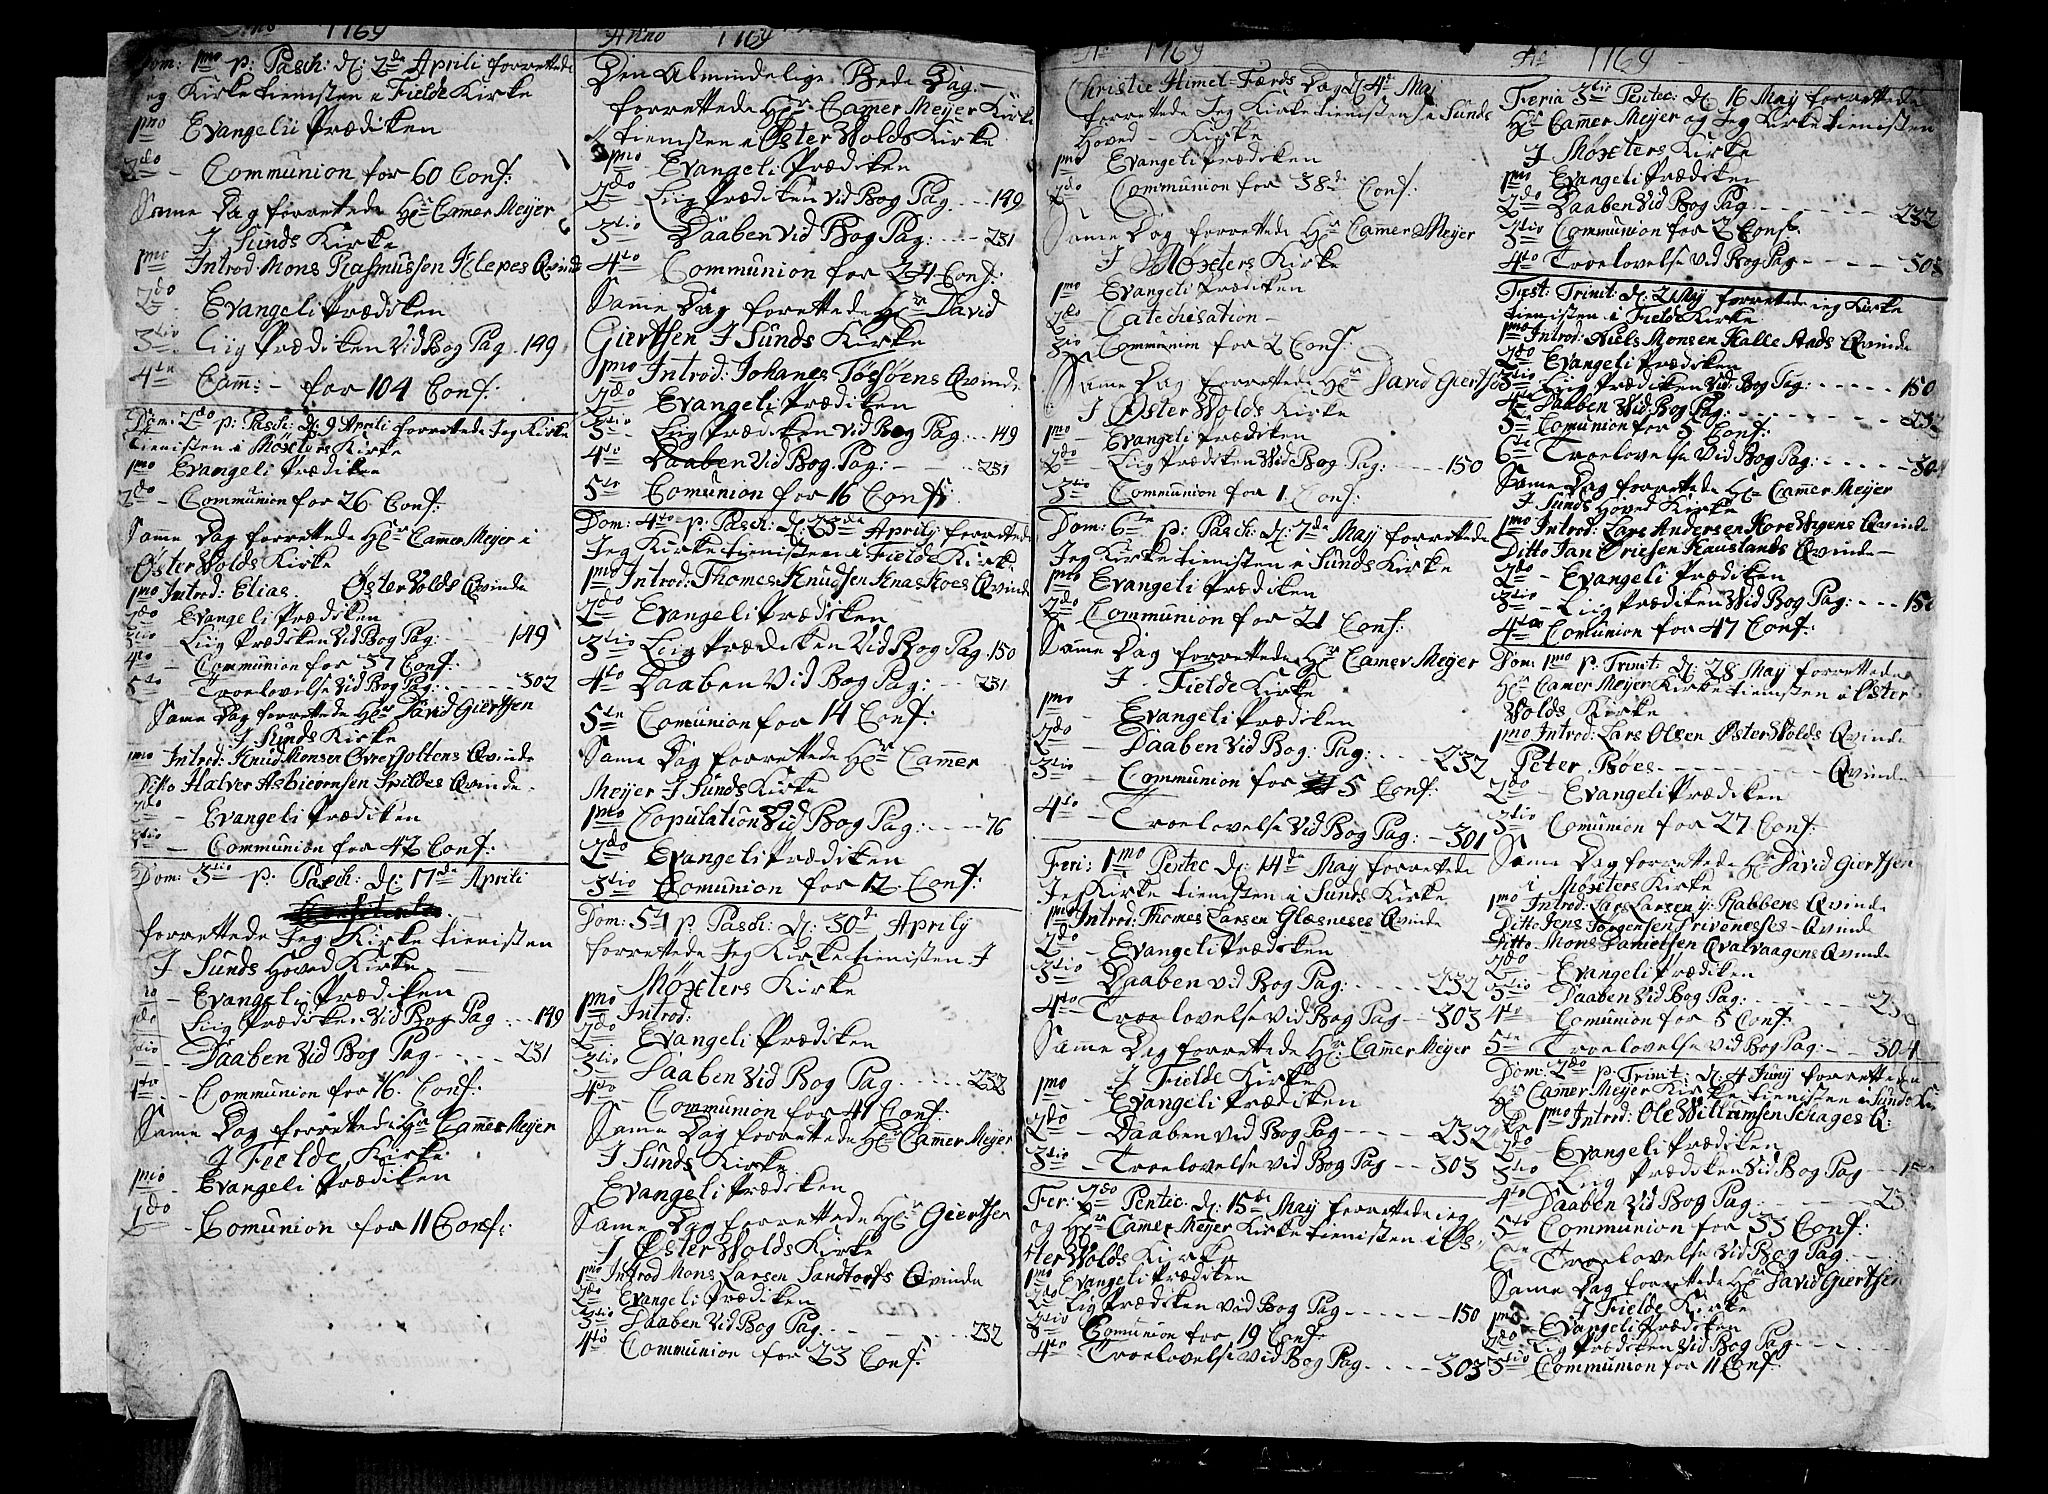 Anno 1769
Dom: 1mo p: Pasch: d: 2de Aprili forrettede
Jeg Kirketienisten i Fielde Kirke
1mo Evangelii Prædiken
2do - Communion for 60 Conf:
Samme Dag forrettede Hr Camer Meyer
J Sunds Kirke
1mo Introd: Mons Rasmussen Klepes Qvinde
2do Evangeli Prædiken
3tio Liig Prædiken Vid Bog Pag. 149
4te Comm: - for 104 Conf:
Dom: 2do p: Pasch: d: 9 Aprili forrettede Jeg Kirke
tienisten i Møxters Kirke
1mo Evangeli Prædiken
2do - Communion for 26 Conf:
Samme Dag forrettede Hr Camer Meyer i
Øster Volds Kirke
1mo Introd: Elias. Øster Volds Qvinde
2do Evangeli Prædiken
3tio - Liig Prædiken Vid Bog Pag: - 149
4to - Communion for 37 Conf:
5to - Troelovelse Vid Bog Pag: - - - 302
Samme Dag forrettede Hr David Giertsen
J Sunds Kirke
1mo Introd: Knud Monsen Øvre Goltens Qvinde
Ditto Halver Asbiørnsen Spildes Qvinde.
2do - Evangeli Prædiken
3tio - Communion for 42 Conf:
Dom: 3tio p: Pasch: d: 17de Aprili
forrettede Jeg Kirke tienisten
J Sunds Hoved Kirke
1mo - Evangeli Prædiken
2do Liig Prædiken Vid Bog Pag - - 149
3tio - Daaben Vid Bog Pag - - - 231
4to - Communion for 16 Conf:
Samme Dag forrettede Hr Camer Meyer
J Fielde Kirke
1mo - Evangeli Prædiken
2do - Comunion for 11 Conf:
Anno 1769
Den Almindelige Bede Dag -
forrettede Hr Camer Meyer Kirke
tienisten i Øster Volds Kirke
1mo - Evangeli Prædiken
2do - Liig Prædiken Vid Bog Pag - - 149
3tio - Daaben Vid Bog Pag: - - 231
4to Communion for 24 Conf:
Samme Dag forrettede Hr David
Giertsen J Sunds Kirke
1mo Introd: Johanes Toesøens Qvinde
2do Evangeli Prædiken
3tio - Liig Prædiken Vid Bog Pag - - 149
4to Daaben Vid Bog Pag: - - 231
5te Comunion for 16 Conf:
Dom: 4to p: Pasch: d: 23de Aprily forrettede
Jeg Kirke tienisten i Fielde Kirke.
1mo Introd: Thomes Knudsen Knaskoes Qvinde
2do Evangeli Prædiken
3tio Liig Prædiken Vid Bog Pag 150
4to Daaben Vid Bog Pag: - - 231
5te Comunion for 14 Conf:
Samme Dag forrettede Hr Camer
Meyer J Sunds Kirke
1mo Copulation Vid Bog Pag: - - - 76
2do Evangeli Prædiken
3tio Comunion for 12 Conf:
Dom: 5te p: Pasch: d: 30de Aprily
forrettede Jeg Kirke tienisten J
Møxters Kirke
1mo Introd:
2do Evangeli Prædiken
3tio Daaben Vid Bog Pag - - - 232
4to - Communion for 41 Conf:
Samme Dag forrettede Hr Camer Meyer
J Sunds Kirke
Evangeli Prædiken
Samme Dag forrettede Hr Giertsen
J Øster Volds Kirke
1mo Introd Mons Larsen Sandtorfs Qvinde
2do Evangeli Prædiken
3tio Daaben Vid Bog Pag - - - 232
4to Communion for 23 Conf:
Ao 1769
Christie Himel-Færds Dag d 4de May
forrettede Jeg Kirke tienisten i Sunds
Hoved - Kirke
1mo Evangeli Prædiken
2do Communion for 38 Conf:
Samme Dag forrettede Hr Camer Meyer
J Møxters Kirke
1mo Evangeli Prædiken
2do - Catechisation -
3tio Communion for 2 Conf:
Samme Dag forrettede Hr David Giertsen
J Øster Volds Kirke
1mo - Evangeli Prædiken
2do Liig Prædiken Vid Bog Pag: - - - 150
3tio Communion for 1 Conf:
Dom: 6te p: Pasch: d: 7de May forrettede
Jeg Kirke tienisten i Sunds Kirke
1mo Evangeli Prædiken
2do Communion for 21 Conf:
Samme Dag forrettede Hr Camer Meyer
J Fielde Kirke
1mo - Evangeli Prædiken
2do - Daaben Vid Bog Pag: - - - 232
3tio - Communion for 5 Conf:
4to - Troelovelse Vid Bog Pag: - 301
Feri: 1mo Pentec d: 14de May forrettede
Jeg Kirke tienisten i Sunds Kirke
1mo Introd: Thomes Larsen Glæsneses Qvinde
2do - Evangeli Prædiken
3tio - Daaben Vid Bog Pag: - - - 232
4to - Troelovelse Vid Bog Pag - - 303
Samme Dag forrettede Hr Camer Meyer
J Fielde Kirke
1mo - Evangeli Prædiken
2do - Daaben Vid Bog Pag - - - 232
3tio - Troelovelse Vid Bog Pag - - 303
Fer: 2do Pentec: d: 15de May forrettede jeg
og Hr Camer Meyer Kirke tienisten i Øs
ter Volds Kirke
1mo Evangeli Prædiken
2do Liig Prædiken Vid Bog Pag - - - 150
3tio Comunion for 19 Conf:
4to - Troelovelse Vid Bog Pag - - - 303
Ao 1769
Feria 3tio Pentec: d: 16 May forrettede
Hr Camer Meyer og Jeg Kirke tienisten
J Møxters Kirke
1mo Evangeli Prædiken
2do Daaben Vid Bog Pag - - - 232
3tio Communion for 2 Conf:
4to Troelovelse Vid Bog Pag - - - 303
Fest: Trinit: d: 21 May forrettede jeg Kirke
tienisten i Fielde Kirke
1mo Introd: Niels Monsen Halle Ands Qvinde
2do Evangeli Prædiken
3tio Liig Prædiken Vid: Bog Pag: - - - 150
4to Daaben Vid Bog Pag: - - - 232
5te Comunion for 5 Conf:
6te - Troelovelse Vid Bog Pag: - - - 304
Samme Dag forrettede Hr Camer Meyer
J Sunds Hoved Kirke
1mo Introd: Lars Andersen Kore Wigens Qvinde
Ditto Jan Driesen Kauslands Qvinde -
2do - Evangeli Prædiken
3tio - Liig Prædiken Vid Bog Pag: - - - 150
4to Comunion for 47 Conf:
Dom: 1mo p: Trinit: d: 28 May forrettede
Hr Camer Meyer Kirke tienisten i Øster
Volds Kirke
1mo Introd: Lars Olsen Øster Volds Qvinde
Peter Bøes - - - Qvinde
2do - Evangeli Prædiken
3tio Comunion for 27 Conf:
Samme Dag forrettede Hr David Giertsen
i Møxters Kirke
1mo Introd: Lars Larsen y: Rabbens Qvinde
Ditto Jens Jørgensen Drivenesses - Qvinde
Ditto Mons Danielsen Qvalvaagens Qvinde
2do - Evangeli Prædiken
3tio - Daaben Vid Bog Pag: - - - 232
4to - Comunion for 5 Conf:
5te - Troelovelse Vid Bog Pag: - - 304
Dom: 2do p: Trinit: d: 4 Juny forrettede
Hr Camer Meyer Kirke tienisten i Sunds Kir
ke 1mo Introd: Ole Williamsen Schages Q:
2do - Evangeli Prædiken
3tio - Liig Prædiken Vid Bog Pag
4to Daaben Vid Bog Pag
5to Communion for 33 Conf:
Troelovelse Vid Bog Pag
Samme Dag forrettede Hr David Giertsen
J Fielde Kirke
1mo - Evangeli Prædiken
2do - Liig Prædiken Vid Bog Pag
3tio Communion for 11 Conf: